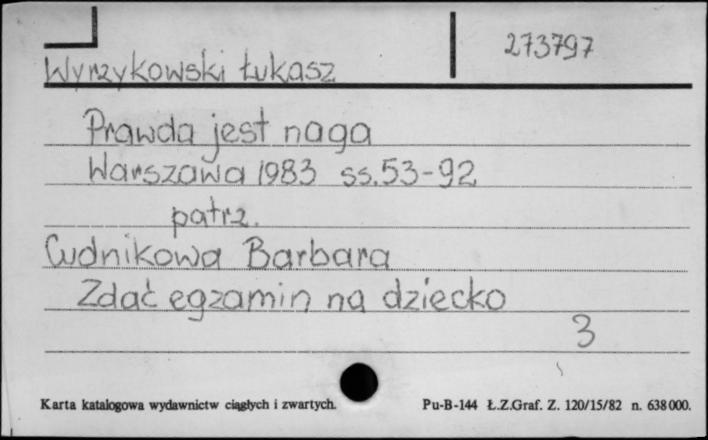 273797
Wyrzykowski Łukasz
Prawda jest naga
Warszawa 1983 ss.53-92
patrz.
Cudnikowa Barbara
Zdać egzamin na dziecko
3
Karta katalogowa wydawnictw ciągłych i zwartych. Pu-B-144 Ł.Z.Graf. Z. 120/15/82 n. 638000.